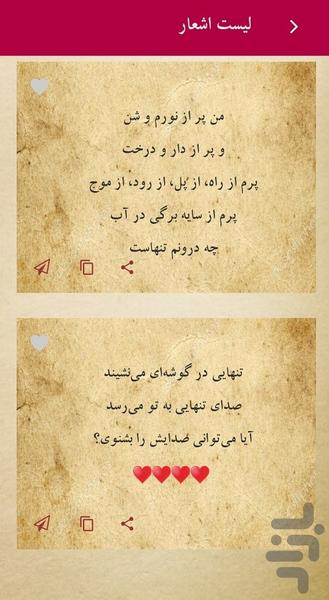 لیست اشعار
من پر از نورم و شن
و پر از دار و درخت
پرم از راه، از پُل، از رود، از موج
پرم از سایه برگی در آب
چه درونم تنهاست
تنهایی در گوشه‌ای می‌نشیند
صدای تنهایی به تو می‌رسد
آیا می‌توانی صدایش را بشنوی؟
❤❤❤❤
بازار